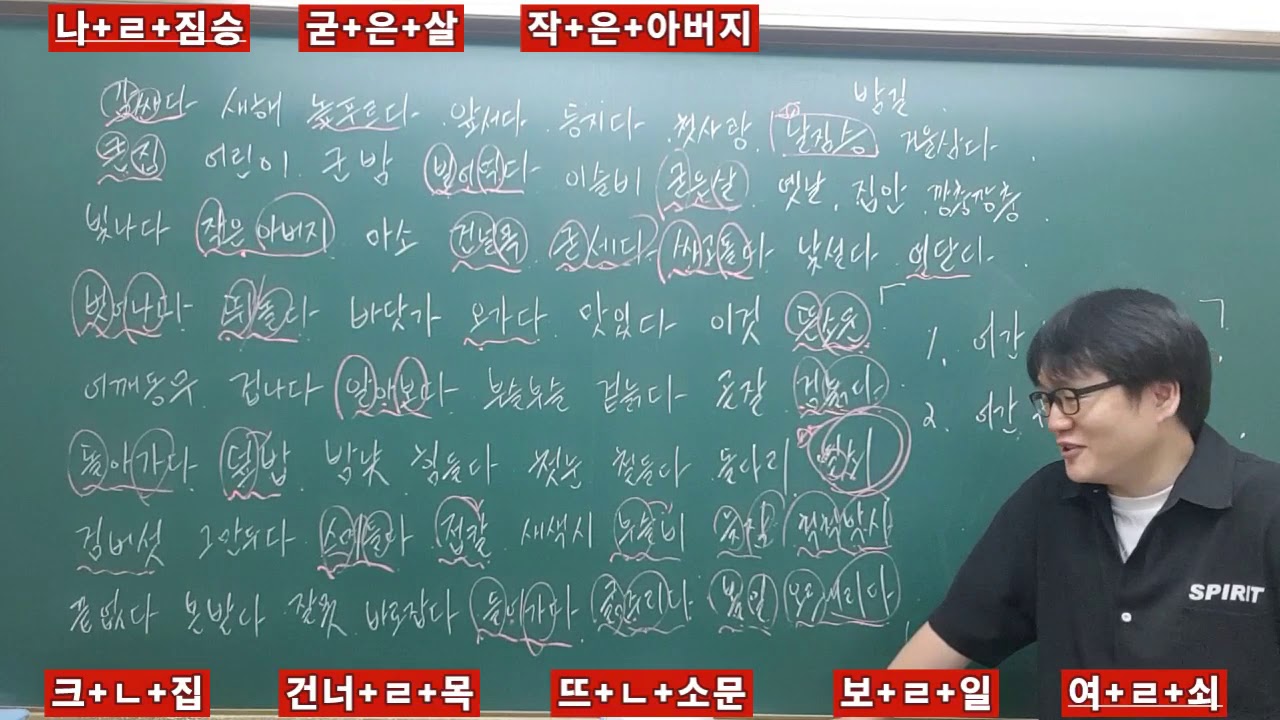 나+ㄹ+짐승 굳+은+살 작+은+아버지
밤길
값싸다 새해 높푸르다 앞서다 등지다 첫사랑 날짐승 거울삼다
큰집 어린이 군밤 빌어먹다 이슬비 굳은살 옛날 집안 깡충깡충
빛나다 작은아버지 건널목 굳세다 싸고돌다 낯설다 여닫다
벗어나다 뛰놀다 바닷가 오가다 맛있다 이것 뜬소문
1. 어간
어깨동무 겁나다 알아보다 부슬부슬 겉늙다 곧잘 검붉다
2. 어간
돌아가다 덮밥 밤낮 힘들다 첫눈 철들다 돌다리 열쇠
검버섯 그만두다 스며들다 접칼 새색시 부슬비 척척박사
끝없다 본받다 잘못 바로잡다 들어가다 볼일 오르내리다
SPIRIT
크+ㄴ+집 건너+ㄹ+목 뜨+ㄴ+소문 보+ㄹ+일 여+ㄹ+쇠